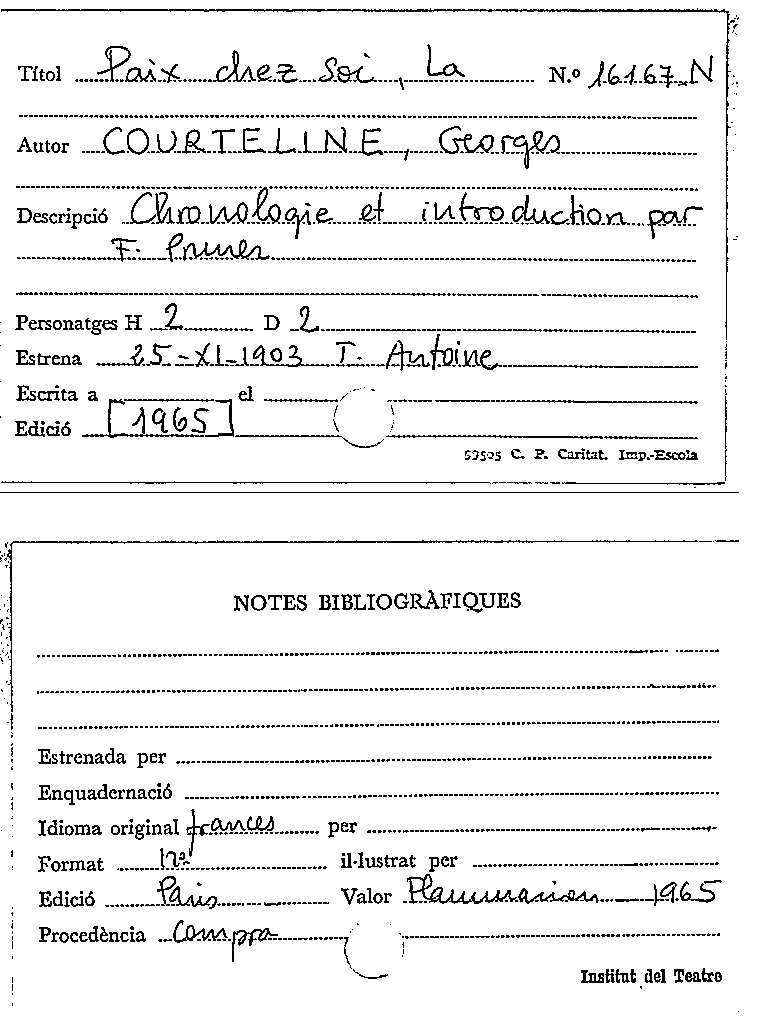 Títol Paix chez soi, La N.º 16167-N
Autor COURTELINE, Georges
Descripció Chronologie et introduction par
F. Pruner
Personatges H 2 D 2
Estrena 25-XI-1903 T. Antoine
Escrita a el
Edició [1965]
C. P. Caritat. Imp.-Escola
NOTES BIBLIOGRÀFIQUES
Estrenada per
Enquadernació
Idioma original frances per
Format il·lustrat per
Edició Paris Valor Flammarion 1965
Procedència Compra
Institut del Teatro